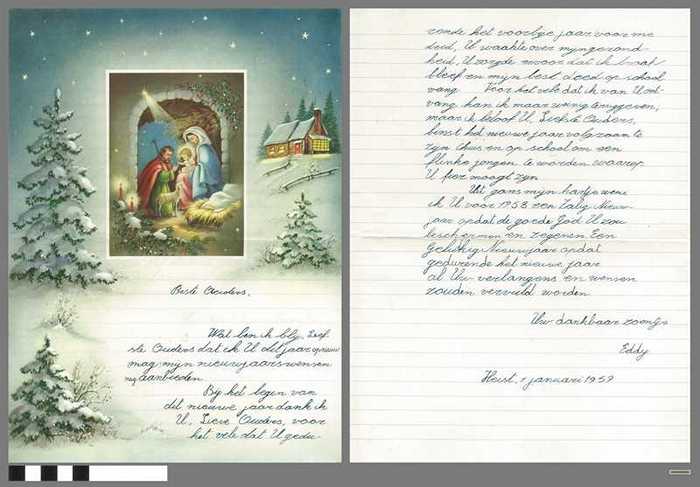 Beste Ouders,
Wat ben ik blij, Lief
ste Ouders dat ik U dit jaar opnieuw
mag mijn nieuwjaarswensen
aanbieden
Bij het begin van
dit nieuwe jaar dank ik
U, Lieve Ouders, voor
het vele dat U gedu-
rende het voorbije jaar voor me
deed. U waakte over mijn gezond-
heid, U zorgde ervoor dat ik braaf
bleef en mijn best deed op school
Voor het vele dat ik van U ont-
vang kan ik maar weinig teruggeven,
maar ik beloof U, Liefste Ouders,
binst het nieuwe jaar volgzaam te
zijn thuis en op school om een
flinke jongen te worden waarop
U fier moogt zijn
Uit gans mijn hartje wens
ik U voor 1958 een Zalig Nieuw-
jaar opdat de goede God U zou
beschermen en zegenen Een
Gelukkig Nieuwjaar opdat
gedurende het nieuwe jaar
al Uw verlangens en wensen
zouden vervuld worden
Uw dankbaar zoontje
Eddy
Heist, 1 januari 1959